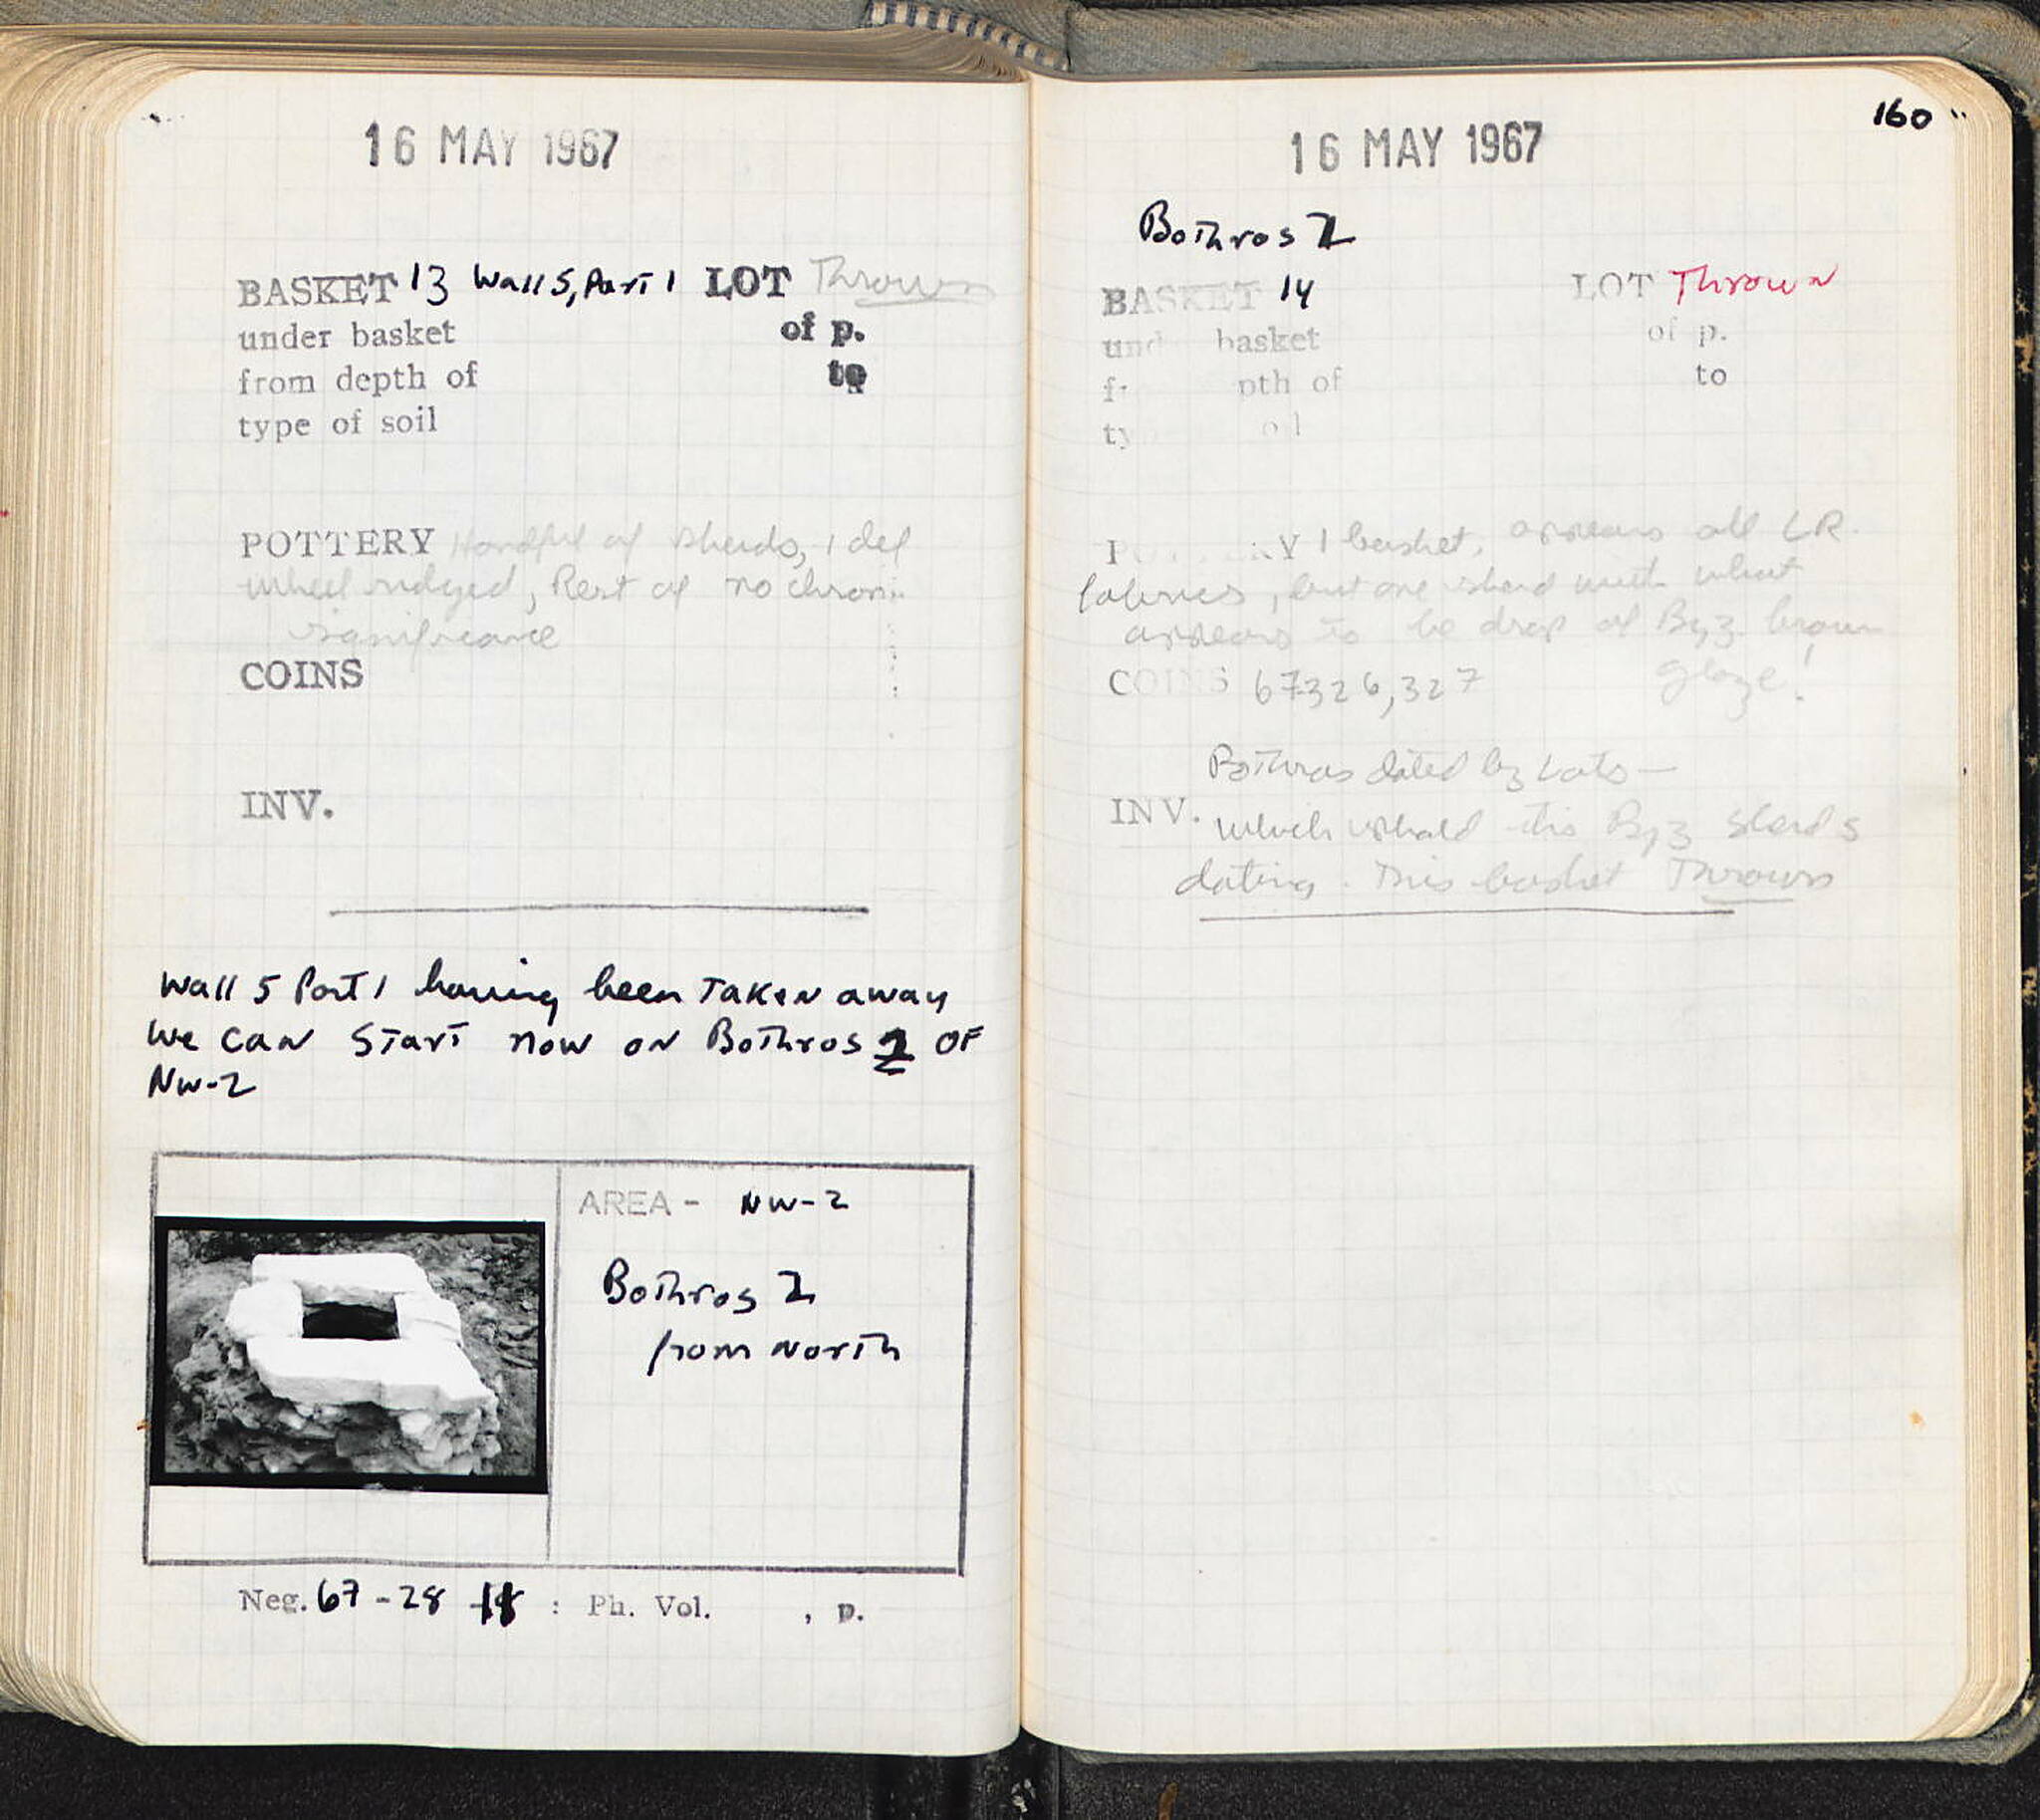 16 MAY 1967
BASKET 13 Wall 5, Part 1 LOT Thrown
under basket of p.
from depth of to
type of soil
POTTERY Handful of sherds, 1 def
wheel ridged, Rest of no chron.
significance
COINS
INV.
Wall 5 Part 1 having been taken away
we can start now on Bothros 2 of
NW-2
AREA - NW-2
Bothros 2
from North
Neg. 67-28 : Ph. Vol. , p.
160
16 MAY 1967
Bothros 2
BASKET 14 LOT Thrown
und basket of p.
f pth of to
ty o l
P RY 1 basket, appears all LR.
fabrics, but one sherd with what
appears to be drop of Byz brown
glaze!
COINS 67326, 327
Bothros dated by Lots —
INV. which this Byz sherds
dating. This basket Thrown